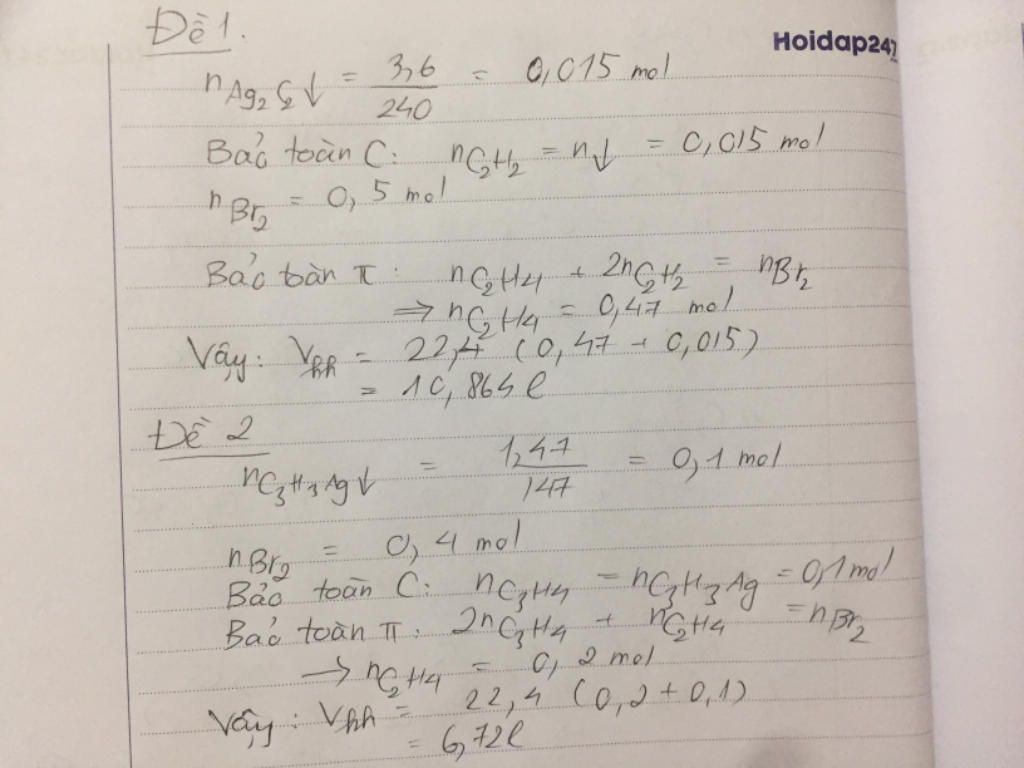 Đề 1.
Hoidap247
nAg₂C₂↓ = 3,6/240 = 0,015 mol
Bảo toàn C: nC₂H₂ = n↓ = 0,015 mol
nBr₂ = 0,5 mol
Bảo toàn π: nC₂H₄ + 2nC₂H₂ = nBr₂
⇒ nC₂H₄ = 0,47 mol
Vậy: Vhh = 22,4 (0,47 + 0,015)
= 10,864 l
Đề 2
nC₃H₃Ag↓ = 1,47/147 = 0,1 mol
nBr₂ = 0,4 mol
Bảo toàn C: nC₃H₄ = nC₃H₃Ag = 0,1 mol
Bảo toàn π: 2nC₃H₄ + nC₂H₄ = nBr₂
→ nC₂H₄ = 0,2 mol
Vậy: Vhh = 22,4 (0,2 + 0,1)
= 6,72 l